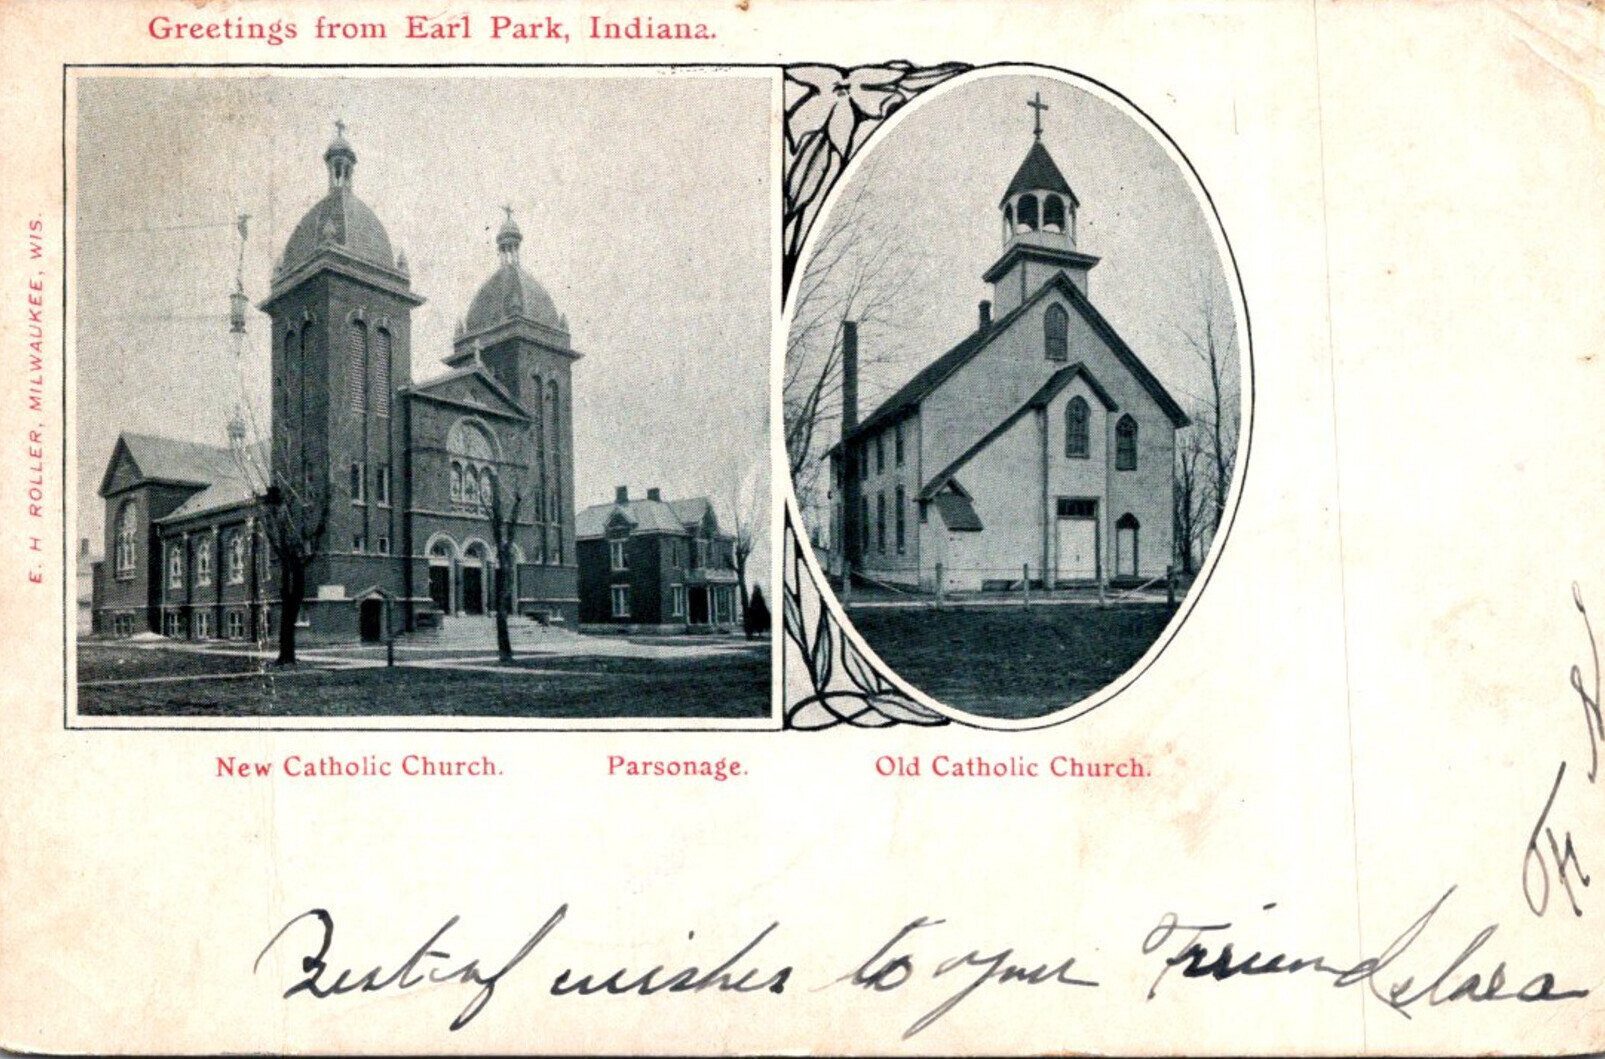 Greetings from Earl Park, Indiana.
E. H ROLLER, MILWAUKEE, WIS.
New Catholic Church. Parsonage. Old Catholic Church.
Best of wishes to your Friend Clara